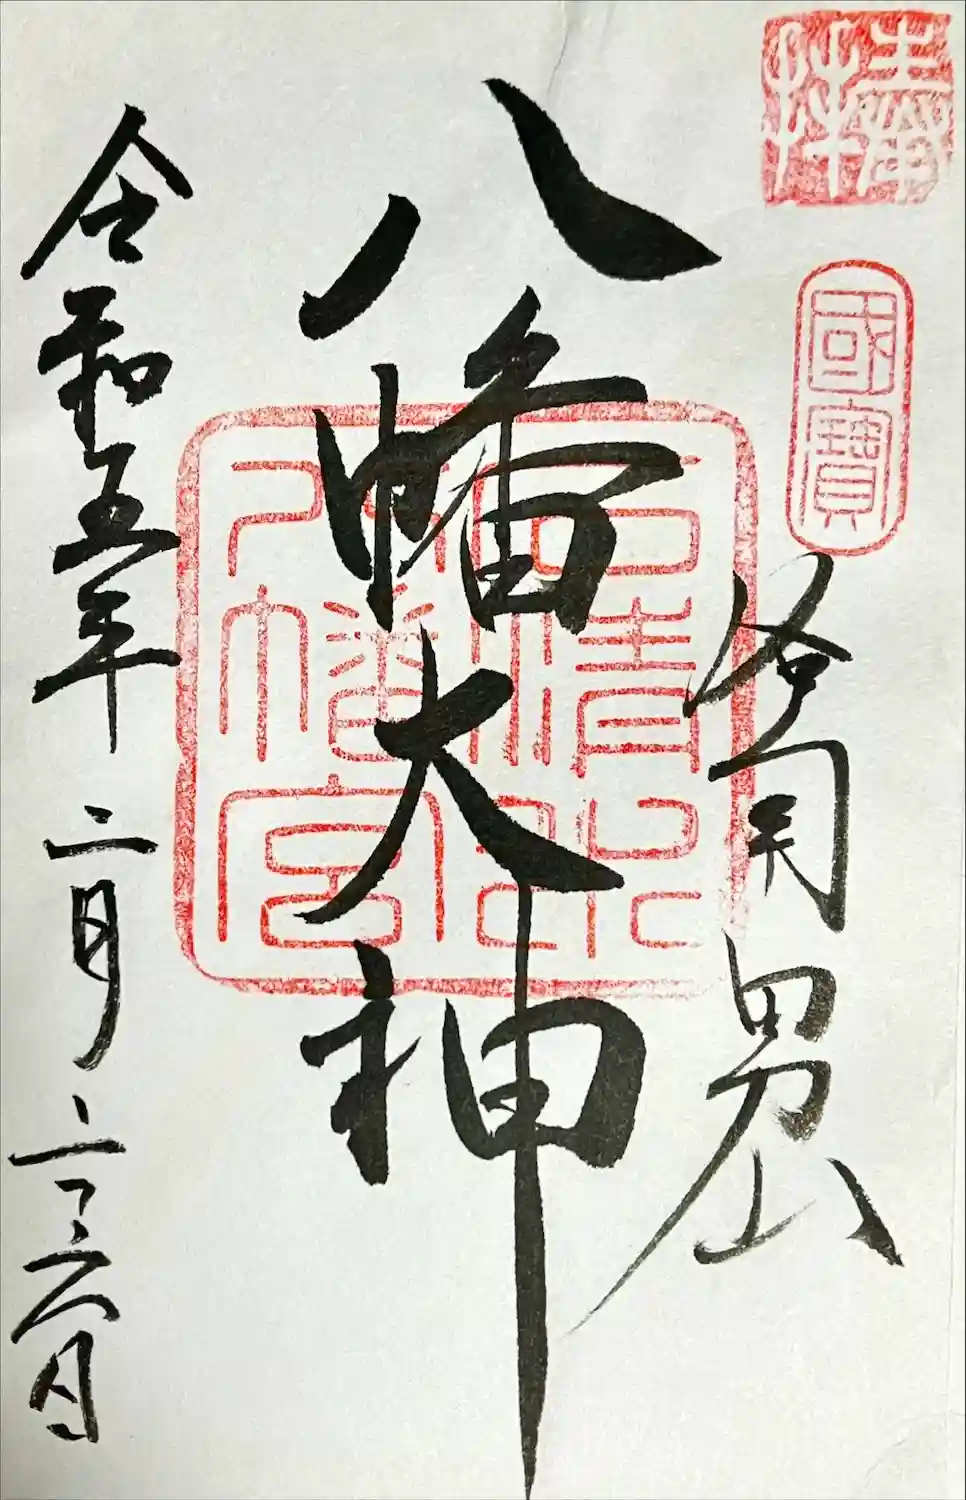 奉拜
國寶
洛南 男山
八幡大神
石清水
八幡宮
令和五年二月二十六日